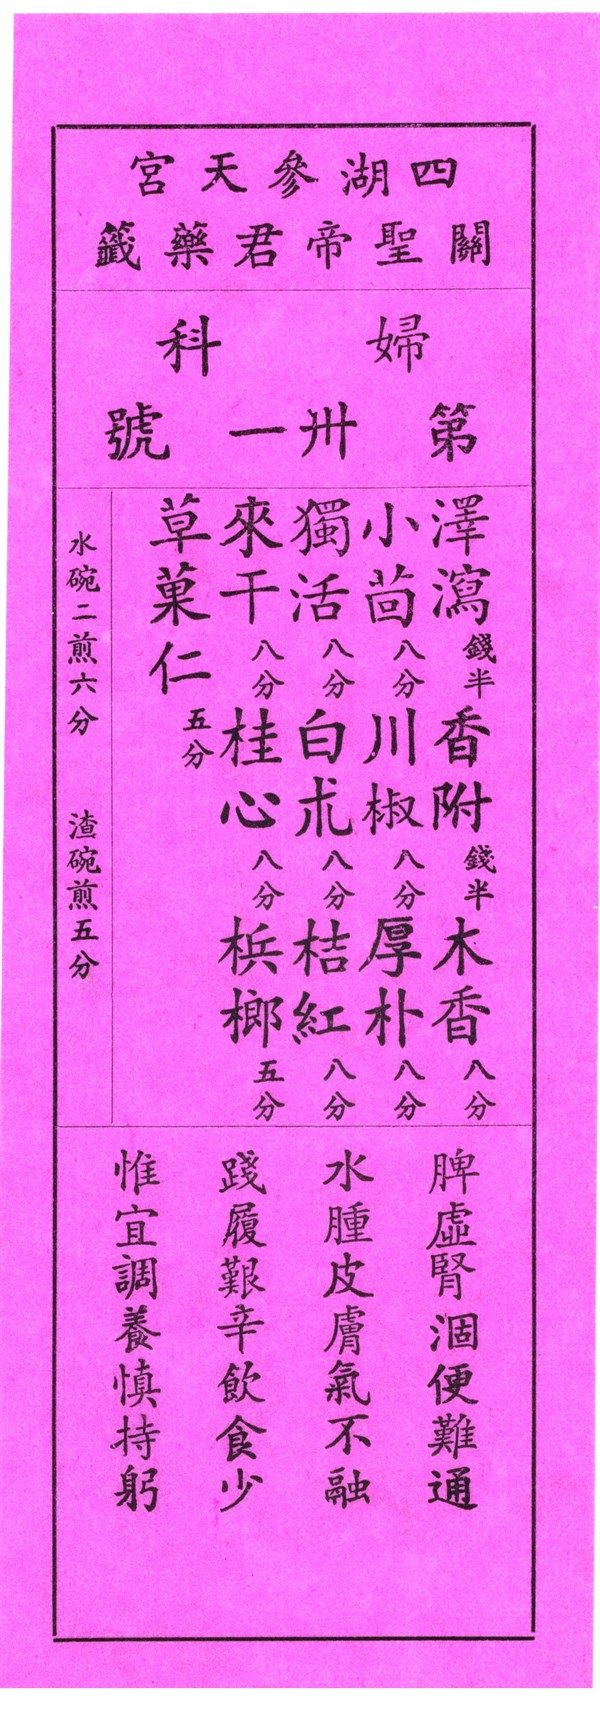 四湖參天宮
關聖帝君藥籤
婦科
第卅一號
澤瀉錢半香附錢半木香八分
小茴八分川椒八分厚朴八分
獨活八分白朮八分桔紅八分
來干八分桂心八分梹榔五分
草菓仁五分
水碗二煎六分 渣碗煎五分
脾虛腎涸便難通
水腫皮膚氣不融
踐履艱辛飲食少
惟宜調養慎持躬